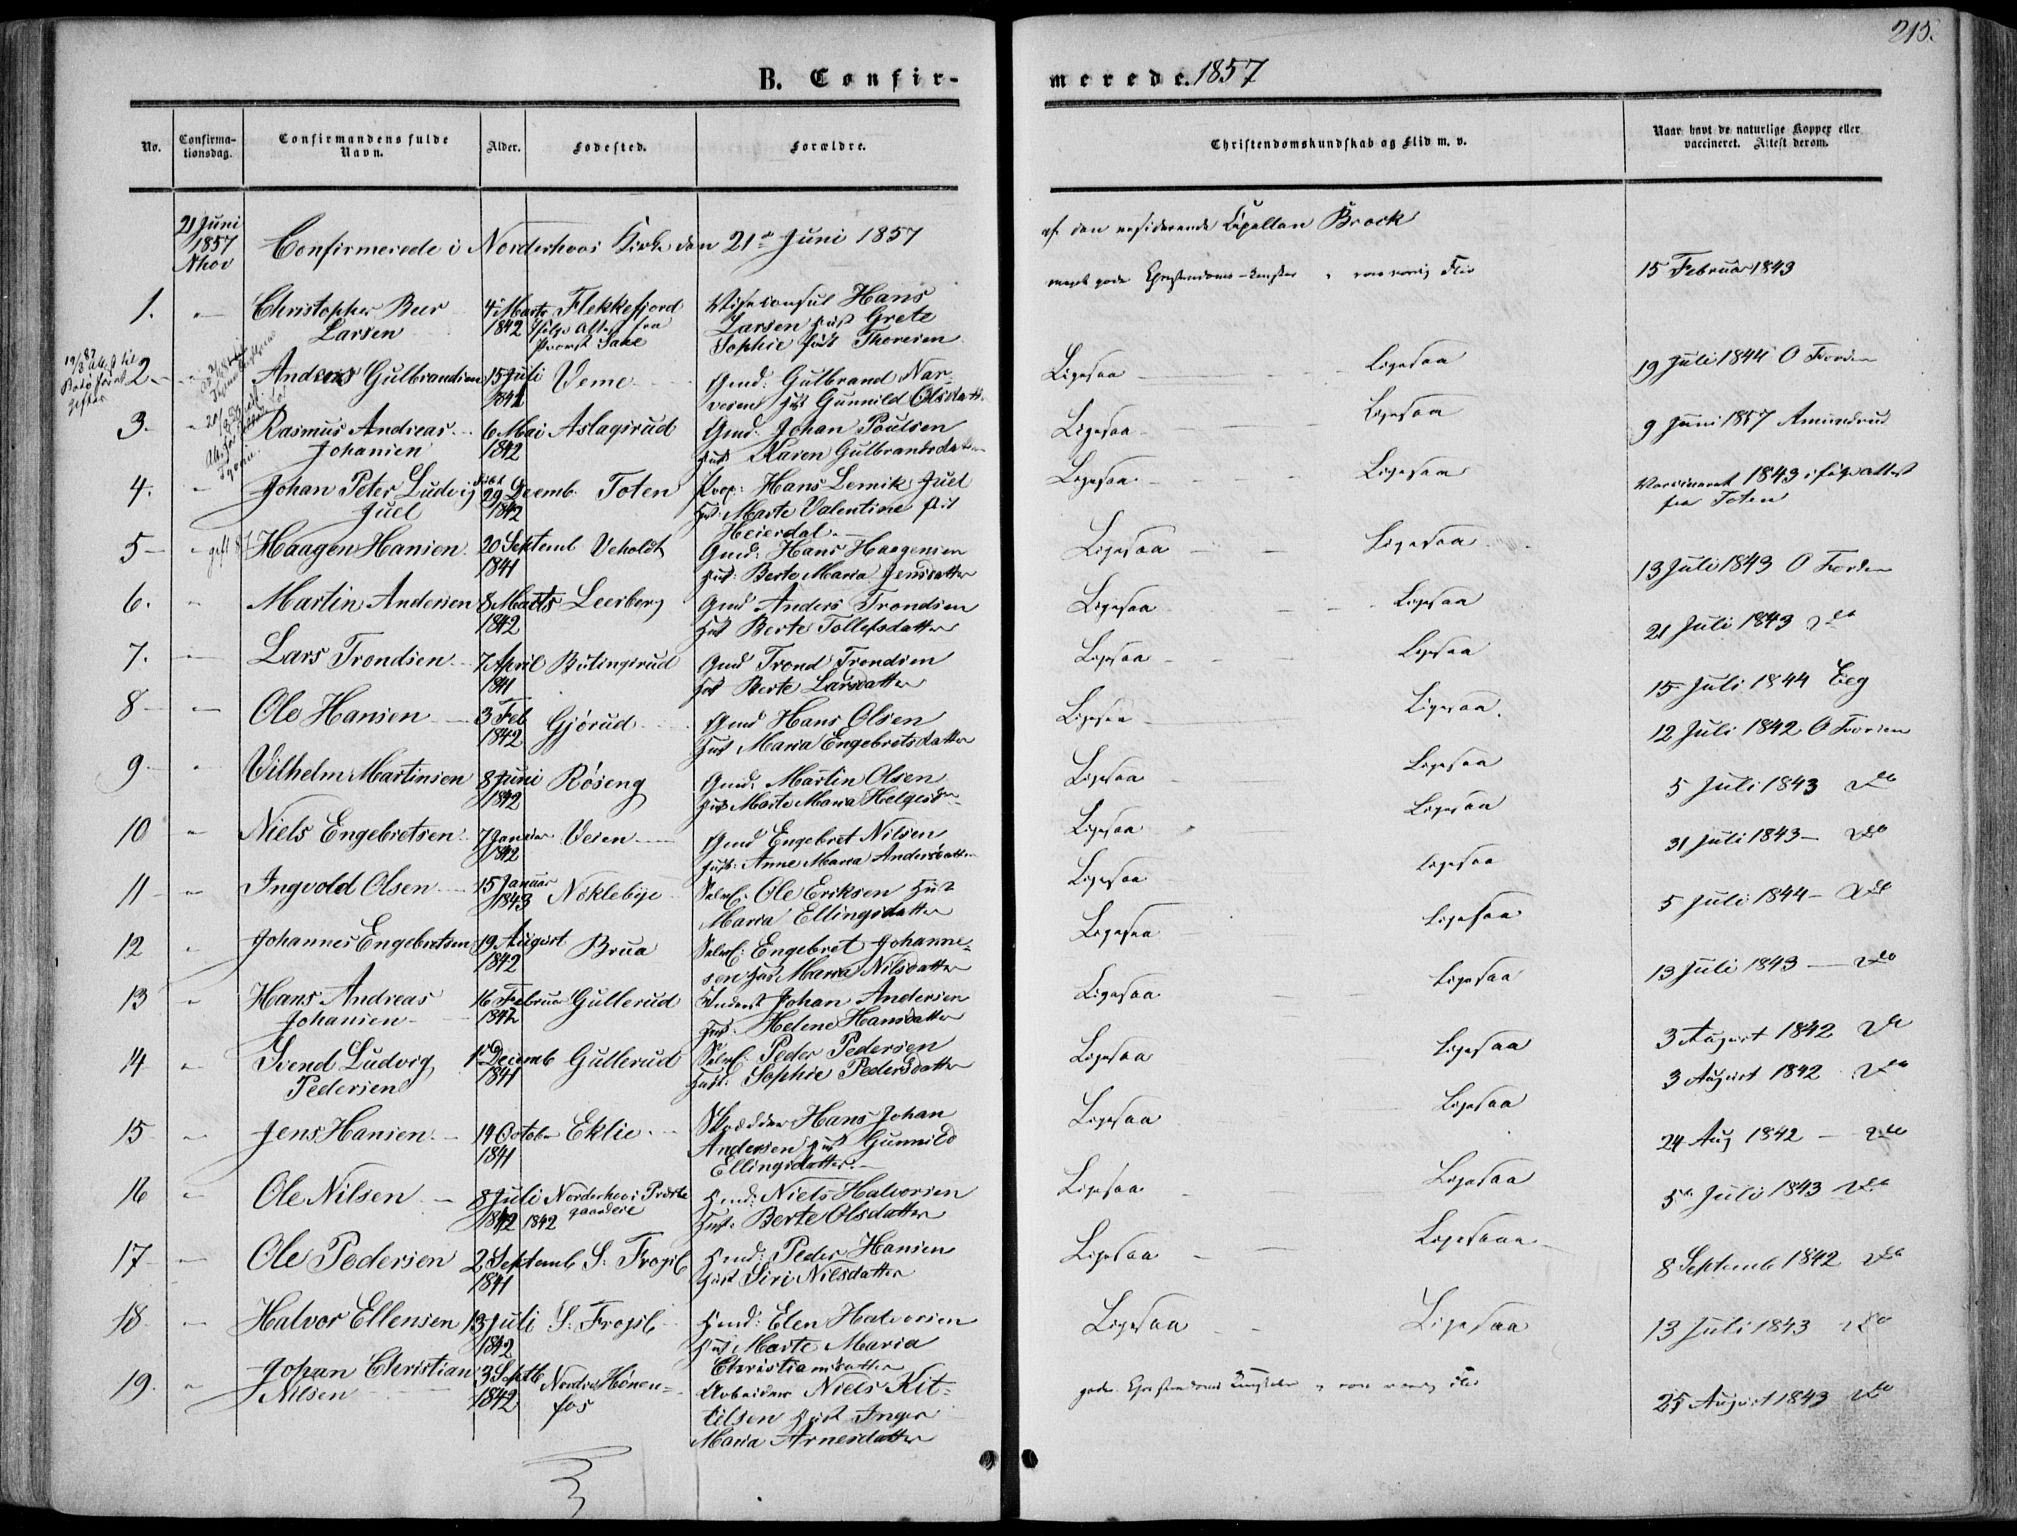 215.
B. Confir-
merede. 1857
No.
Confirma-
tionsdag.
Confirmandens fulde
Navn.
Alder.
Fødested.
Forældre.
Christendomskundskab og Flid m. v.
Naar havt de naturlige Kopper eller
vaccineret. Attest derom.
21 Juni
1857
Nhov
Confirmerede i Norderhovs Kirke den 21de Juni 1857
af den residerende Capellan Brock
1. Christopher Beer 4 Marts Flekkefjord Viceconsul Hans
Larsen 1842 ifølge Attest fra Larsen Hust Grete
Provst Sophie født Thoresen
meget gode Christendoms-Kundskaber og Flid
15 Februar 1843
2 Anders Gulbrandsen 15 Juli Veme Gmd: Gulbrand Nar-
1841 veren Hust Gunnild Olsdatt.
Ligesaa Ligesaa
19 Juli 1844 O
3. Rasmus Andreas 6 Mai Aslagsrud Gmd. Johan Poulsen
Johansen 1842 Hust Karen Gulbrandsdatter
Ligesaa Ligesaa
9 Juni 1857 Amundrud
4. Johan Peter Ludvig 29 Decemb. Toten Prop: Hans Lemik Juel
Juel 1842 Hst: Marte Valentine født
Heierdal
Ligesaa Ligesaa
Vaccineret 1843 ifølge attest
fra Toten
5 Haagen Hansen 20 Septemb Veholdt Gmd: Hans Haagensen
1841 Hust: Berte Maria Jensdatter
Ligesaa Ligesaa
13 Juli 1843 O
6. Martin Andersen 8 Marts Leerberg Gmd Anders Trondsen
1842 Hust Berte Tollefsdatter
Ligesaa Ligesaa
21 Juli 1843 do
7. Lars Trondsen 7 April Butingsrud Gmd Trond Trondsen
1841 Hust Berte Larsdatter
Ligesaa Ligesaa
15 Juli 1844 Eeg
8 Ole Hansen 3 Feb Gjörud Gmd Hans Olsen
1842 Hust Maria Engebretsdatter
Ligesaa Ligesaa.
12 Juli 1842 O
9 Vilhelm Martinsen 8 Juni Røseng Gmd. Martin Olsen
1842 Hust Marte Maria Helgesd
Ligesaa Ligesaa
5 Juli 1843 do
10 Niels Engebretsen 7 Januar Veien Gmd Engebret Nilsen
1842 Hust: Anne Maria Andersdatter
Ligesaa Ligesaa
31 Juli 1843 do
11 Ingvold Olsen 15 Januar Noklebye Selve: Ole Eriksen Hust
1843 Maria Ellingsdatter
Ligesaa Ligesaa
5 Juli 1844 do
12 Johannes Engebretsen 19 August Brua Selve: Engebret Johanne-
1842 sen Hust Maria Nilsdatter
Ligesaa Ligesaa
13 Juli 1843 do
13 Hans Andreas 16 Februar Gullerud Inderst Johan Andersen
Johansen 1842 Hust. Helene Hansdatter
Ligesaa Ligesaa
3 August 1842 do
14 Svend Ludvig Decemb Gullerud Selve: Peder Pedersen
Pedersen 1841 Hust: Sophie Pedersdatter
Ligesaa Ligesaa
3 August 1842 do
15 Jens Hansen 19 October Eklie Skrædder Hans Johan
1841 Andersen Hust Gunnild
Ellingsdatter
Ligesaa Ligesaa
24 Aug 1842 do
16 Ole Nilsen 8 Juli Norderhovs Præste Hmd: Niels Halvorsen
1842 1842 gaardeie Hust. Berte Olsdatter
Ligesaa Ligesaa
5 Juli 1843 do
17 Ole Pedersen 2 Septemb S. Frogsb Hmd: Peder Hansen
1841 Hust Siri Nilsdatter
Ligesaa Ligesaa
8 Septemb 1842 do
18 Halvor Ellensen 13 Juli S. Frogsb Hmd: Elen Halvorsen
1842 Hust Marte Maria
Christiansdatter
Ligesaa Ligesaa
13 Juli 1843 do
19. Johan Christian 3 Septb Nordre Hönen- Arbeider Niels Kit-
Nilsen 1842 fos tilsen Hust Inger
Maria Arnesdatter
gode Christendoms Kundskaber Flid
25 August 1843 do